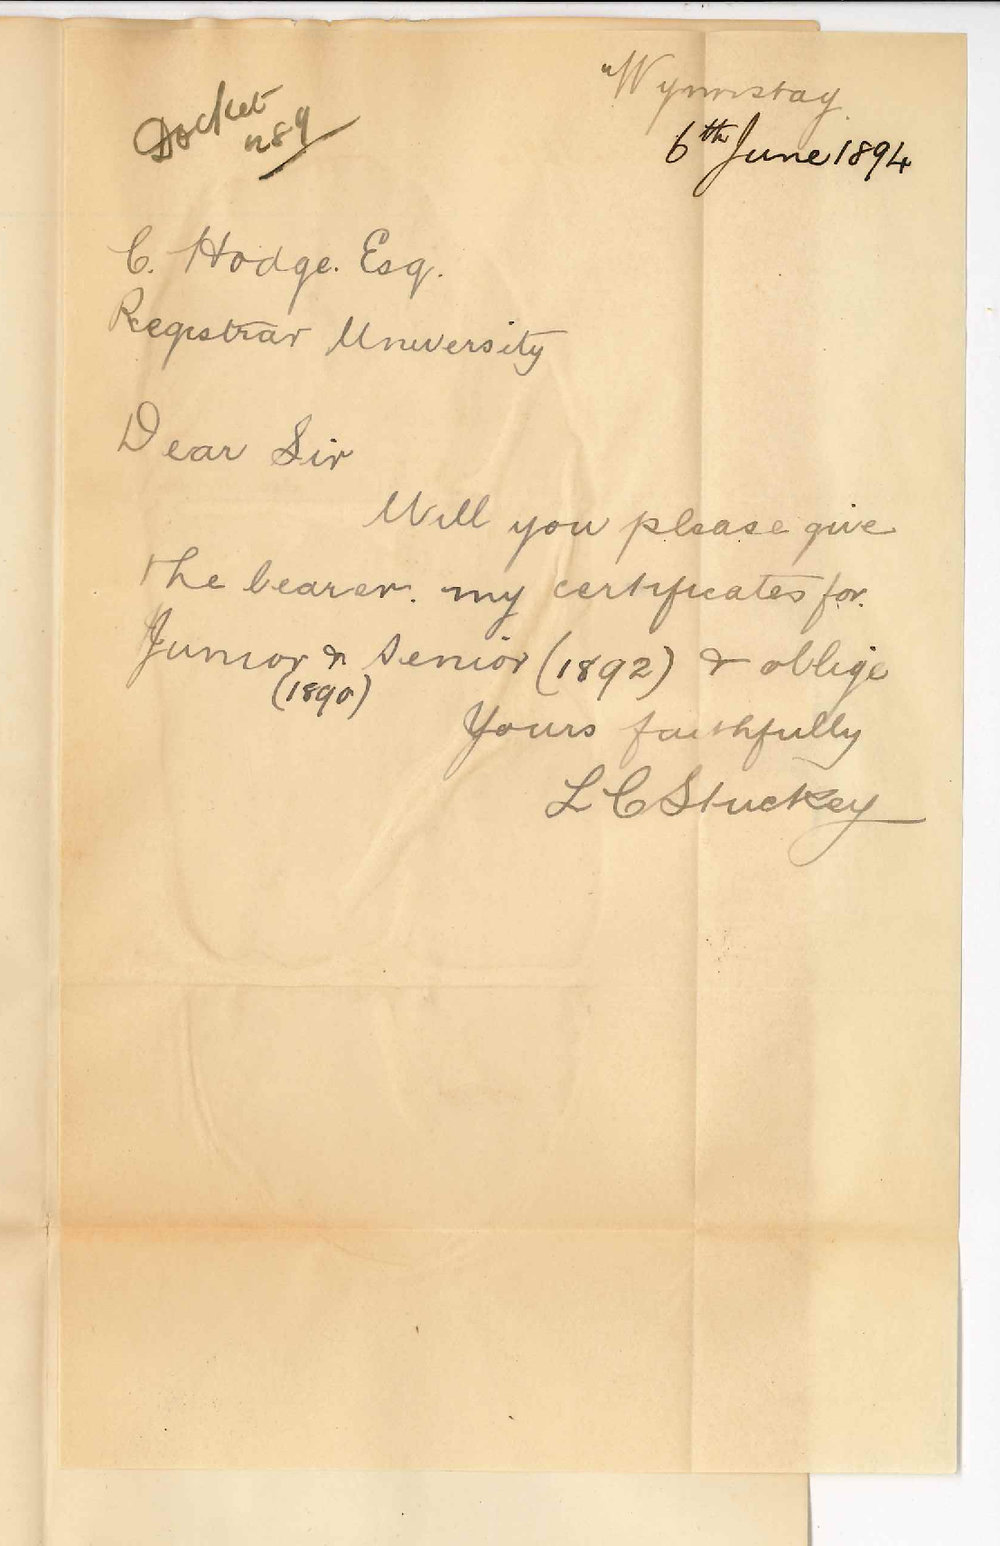 Docket
"Wynnstay
6th June 1894
C. Hodge. Esq.
Registrar University
Dear Sir
Will you please give
the bearer. my certificates for.
Junior & Senior (1892) & oblige
(1890)
Yours faithfully
L C Stuckey